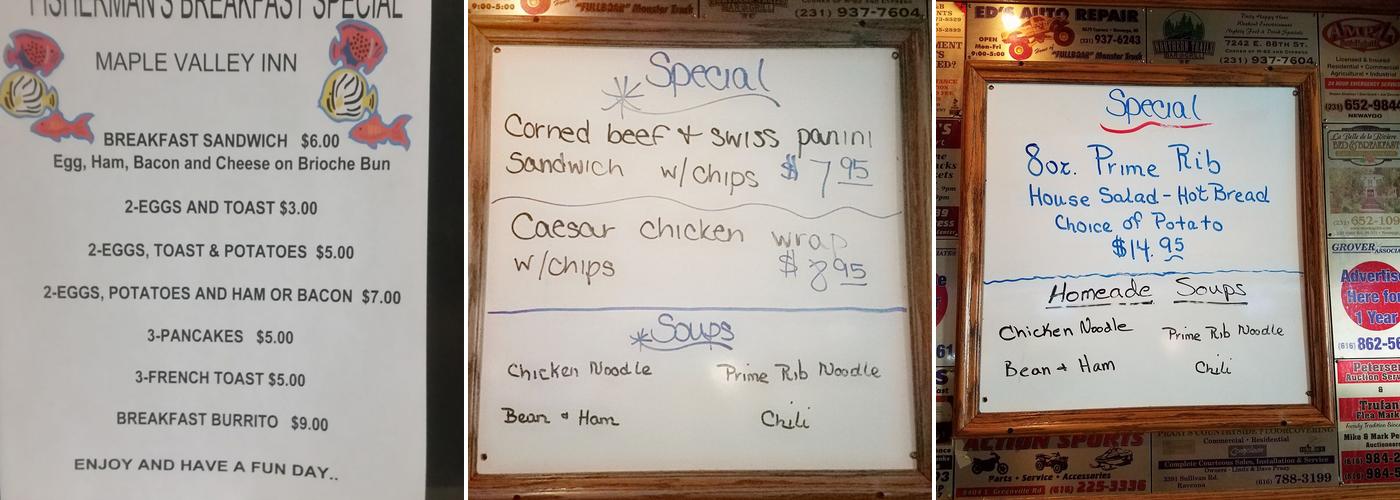 FISHERMAN'S BREAKFAST SPECIAL
MAPLE VALLEY INN
BREAKFAST SANDWICH $6.00
Egg, Ham, Bacon and Cheese on Brioche Bun
2-EGGS AND TOAST $3.00
2-EGGS, TOAST & POTATOES $5.00
2-EGGS, POTATOES AND HAM OR BACON $7.00
3-PANCAKES $5.00
3-FRENCH TOAST $5.00
BREAKFAST BURRITO $9.00
ENJOY AND HAVE A FUN DAY..
9:00-5:00
"FULLBOAR" Monster Truck
(231) 937-7604
Special
Corned beef & swiss panini
Sandwich w/chips $7.95
Caesar chicken wrap
w/chips $8.95
Soups
Chicken Noodle Prime Rib Noodle
Bean & Ham Chili
ED'S AUTO REPAIR
OPEN
Mon-Fri
9:00-5:00
(231) 937-6243
Home of "FULLBOAR" Monster Truck
NORTHERN TRAILS
7242 E. 88TH ST.
(231) 937-7604
Licensed & Insured
Residential • Commercial
Agricultural • Industrial
24 HOUR EMERGENCY SERVICE
(231) 652-984
NEWAYGO
La Belle de la Rivière
BED & BREAKFAST
(231) 652-109
GROVER ASSOCIA
Advertise
Here for
1 Year
(616) 862-56
Petersen
Auction Serv
&
Trufan
Flea Mark
Family Tradition Since
Mike & Mark Pe
Auctioneers
(616) 984-2
(616) 984-5
Special
8oz. Prime Rib
House Salad - Hot Bread
Choice of Potato
$14.95
Homeade Soups
Chicken Noodle Prime Rib Noodle
Bean & Ham Chili
ACTION SPORTS
Parts • Service • Accessories
(616) 225-3336
PRATT'S COUNTRYSIDE FLOORCOVERING
Commercial • Residential
Complete Courteous Sales, Installation & Service
Owners - Linda & Dave Pratt
3391 Sullivan Rd.
Ravenna
(616) 788-3199